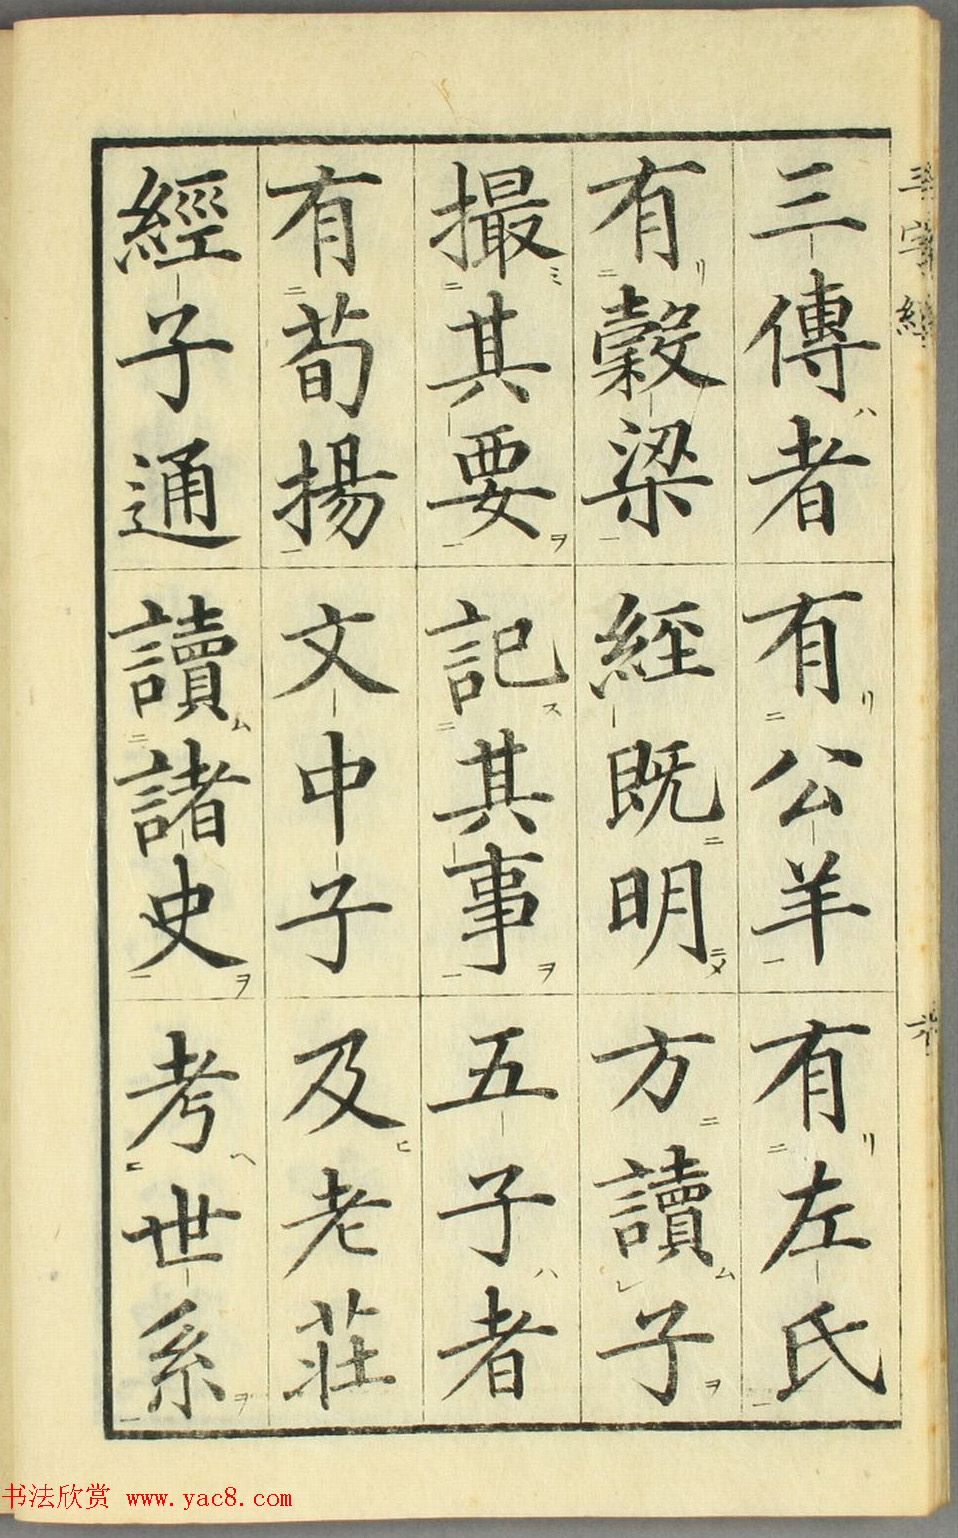 三傳者有公羊有左氏
有穀梁經既明方讀子
撮其要記其事五子者
有荀揚文中子及老莊
經子通讀諸史考世系
三字經
六
书法欣赏 www.yac8.com